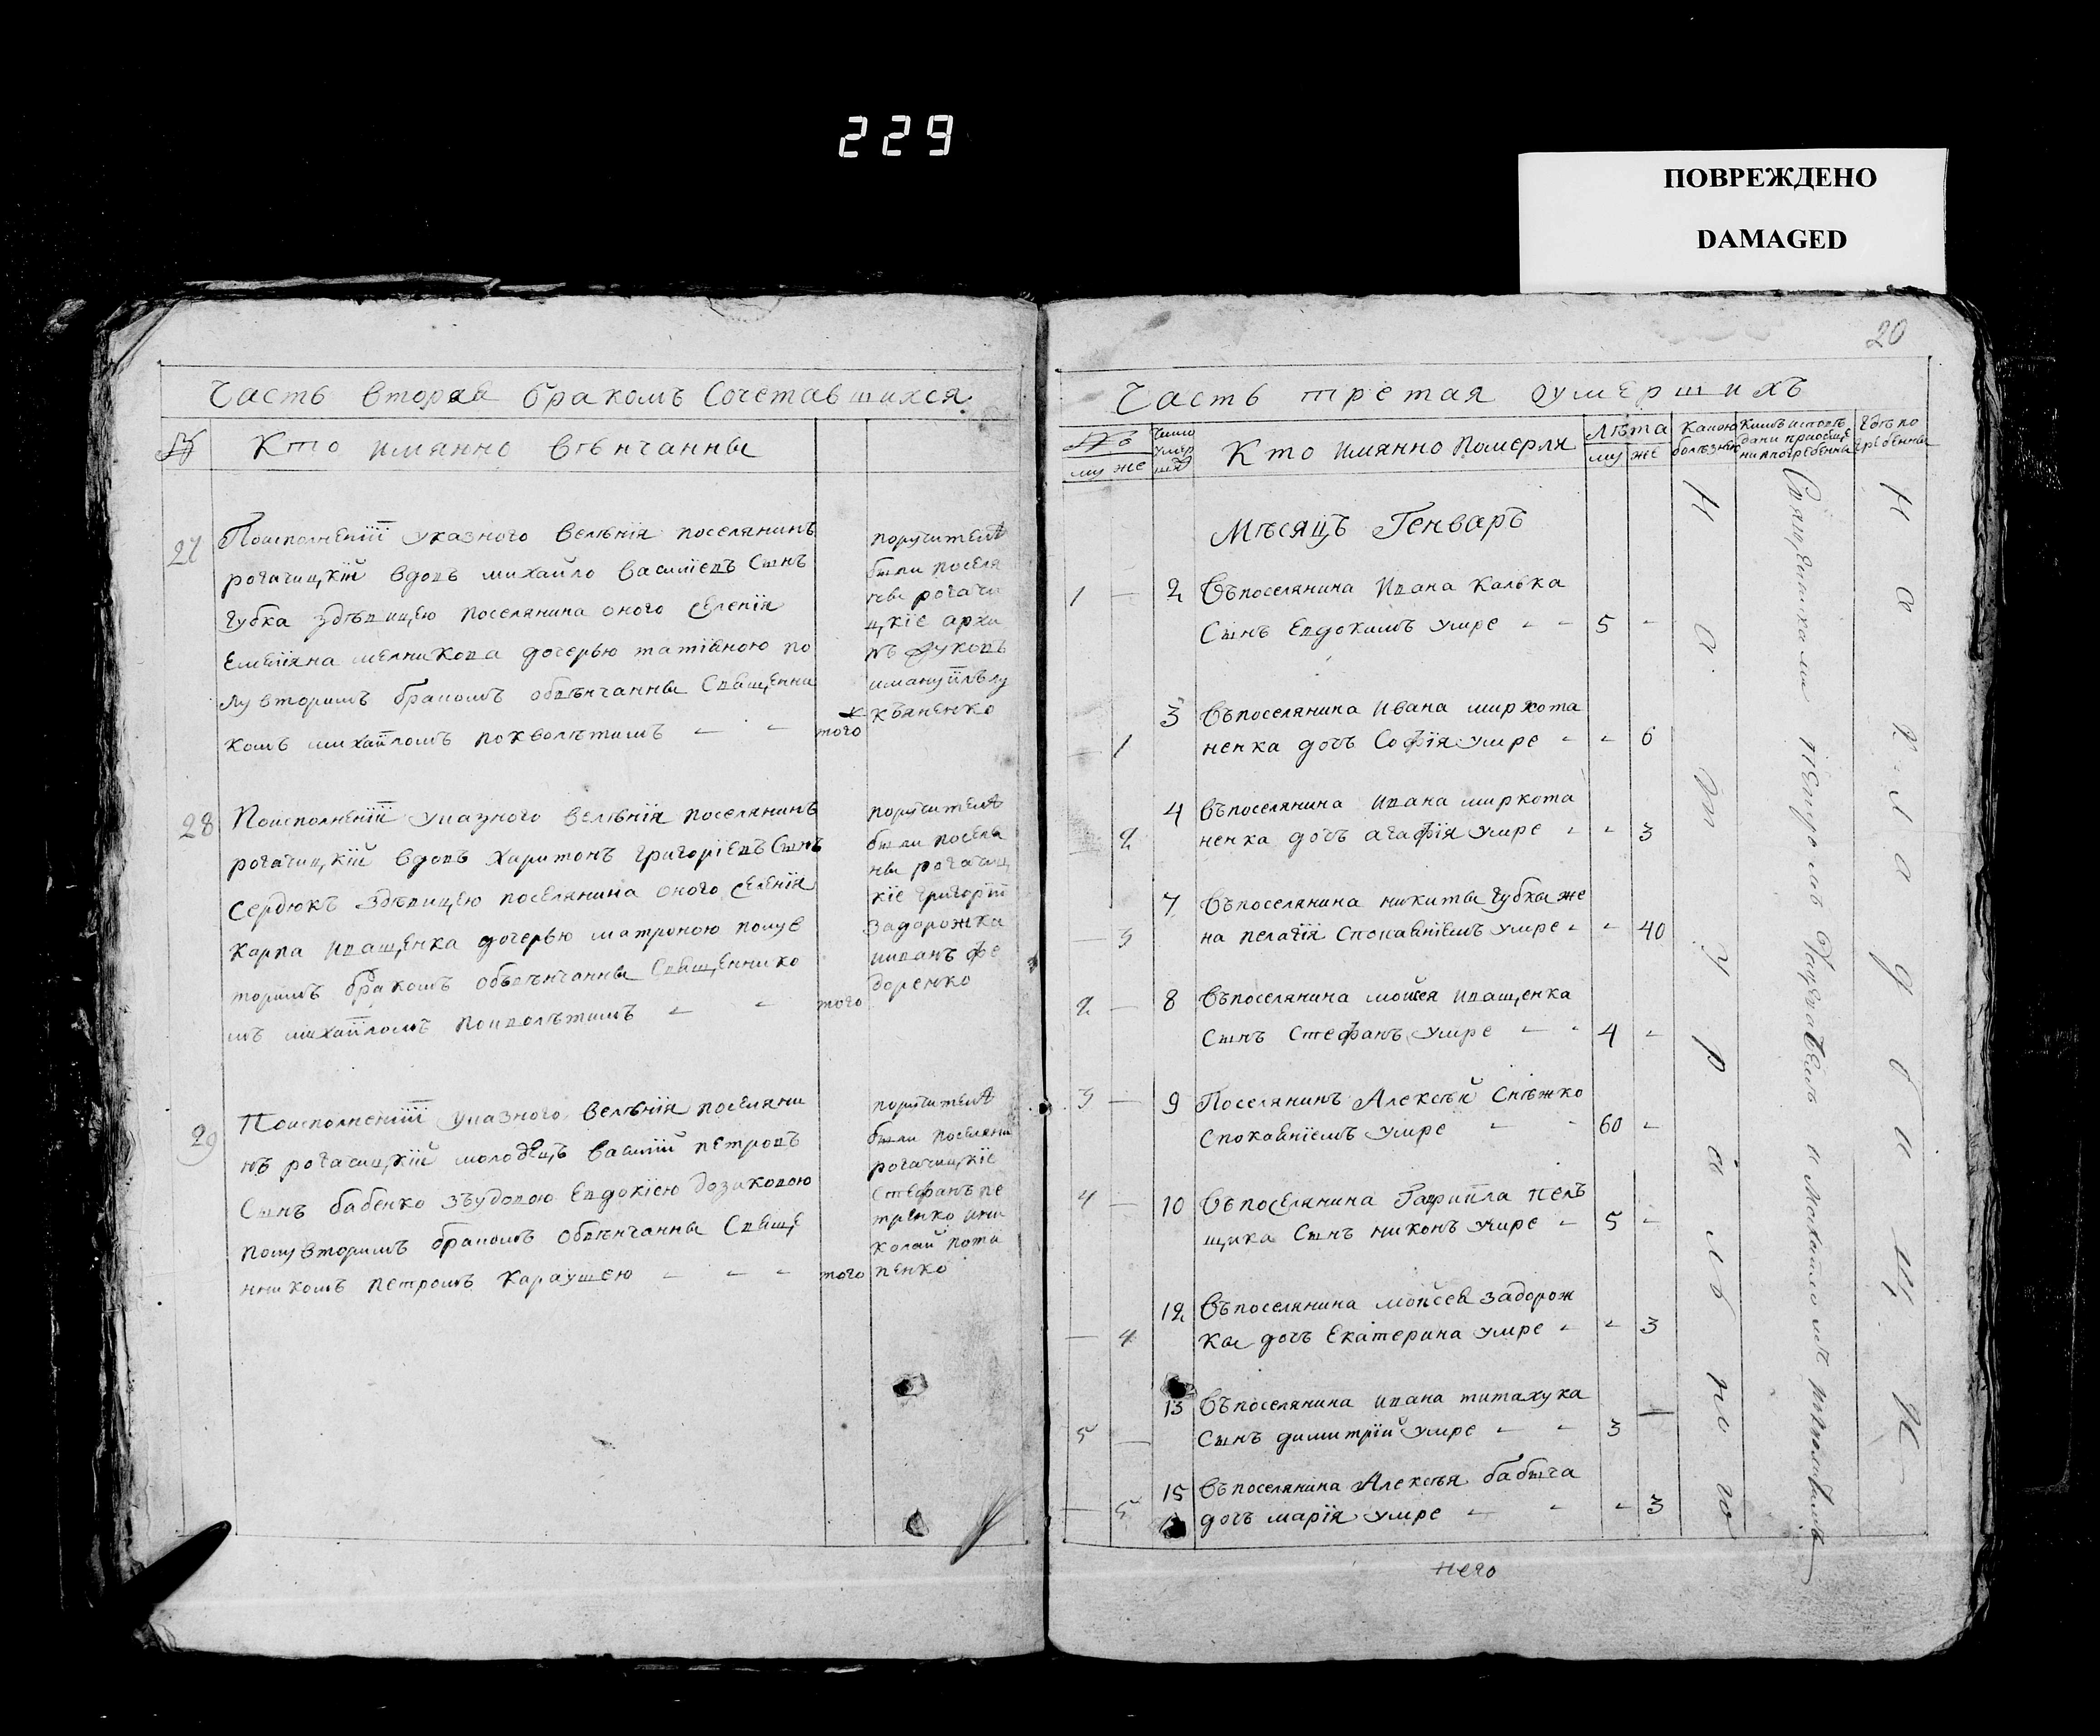 229
ПОВРЕЖДЕНО
DAMAGED
Часть вторая бракомъ Сочетавшихся
№ Кто имянно вѣнчанны
27
Поисполненіи указного велѣнія поселянинъ
рогачицкій вдовъ михайло василіевъ Сынъ
губка здѣвицею поселянина оного селенія
Емеліяна мелникова дочерью татіяною по
лувторимъ бракомъ обвѣнчанны Священни
комъ михаиломъ
того
поручители
были поселя
не рогачи
цкіе архи
пъ
имануилъ лу
кьяненко
28
Поисполненіи указного велѣнія поселянинъ
рогачицкій вдовъ харитонъ григоріевъ Сынъ
Сердюкъ здѣвицею поселянина оного селенія
Карпа иващенка дочерью матроною полув
торимъ бракомъ обвѣнчанны Священнико
мъ михаиломъ
того
поручители
были поселя
не рогачиц
кіе григорій
задорожка
ииванъ фе
доренко
29
Поисполненіи указного велѣнія поселяни
нъ рогачицкій молодецъ василій петровъ
Сынъ бабенко зъудовою Евдокіею
полувторимъ бракомъ обвѣнчанны Свяще
нникомъ петромъ Караушею
того
поручители
были поселяни
рогачицкіе
Стефанъ пе
тренко ини
колай пота
пенко
20
Часть третая оумершихъ
№ му же
Число умер шихъ
Кто имянно Померли
Лѣта му же
Какою болѣзнію
Кѣмъ исповѣ даны приобще ни ипогребенны
Гдѣ по гребенны
Мѣсяцъ Генварь
1 — 2 Въпоселянина Ивана Калька
Сынъ Евдокимъ умре 5
3 Въпоселянина Ивана миркота
— 1 ненка дочъ Софія умре 6
4 Въпоселянина ивана миркота
— 2 ненка дочъ агафія умре 3
7 Въпоселянина никиты губки же
— 3 на пелагія Спокаяніемъ умре 40
2 — 8 Въпоселянина мойсея иващенка
Сынъ Стефанъ умре 4
3 — 9 Поселянинъ Алексѣй Снѣжко
Спокаяніемъ умре 60
4 — 10 Въпоселянина Гавриила пелъ
щика Сынъ никонъ умре 5
12 Въпоселянина мойсея задорож
— 4 ки дочъ Екатерина умре 3
13 Въпоселянина ивана титахука
5 — Сынъ димитрій умре 3
15 Въпоселянина Алексѣя бабыча
— 5 дочъ марія умре 3
Натуралъною
Священниками петромъ и Михаиломъ
На кладбищи
него